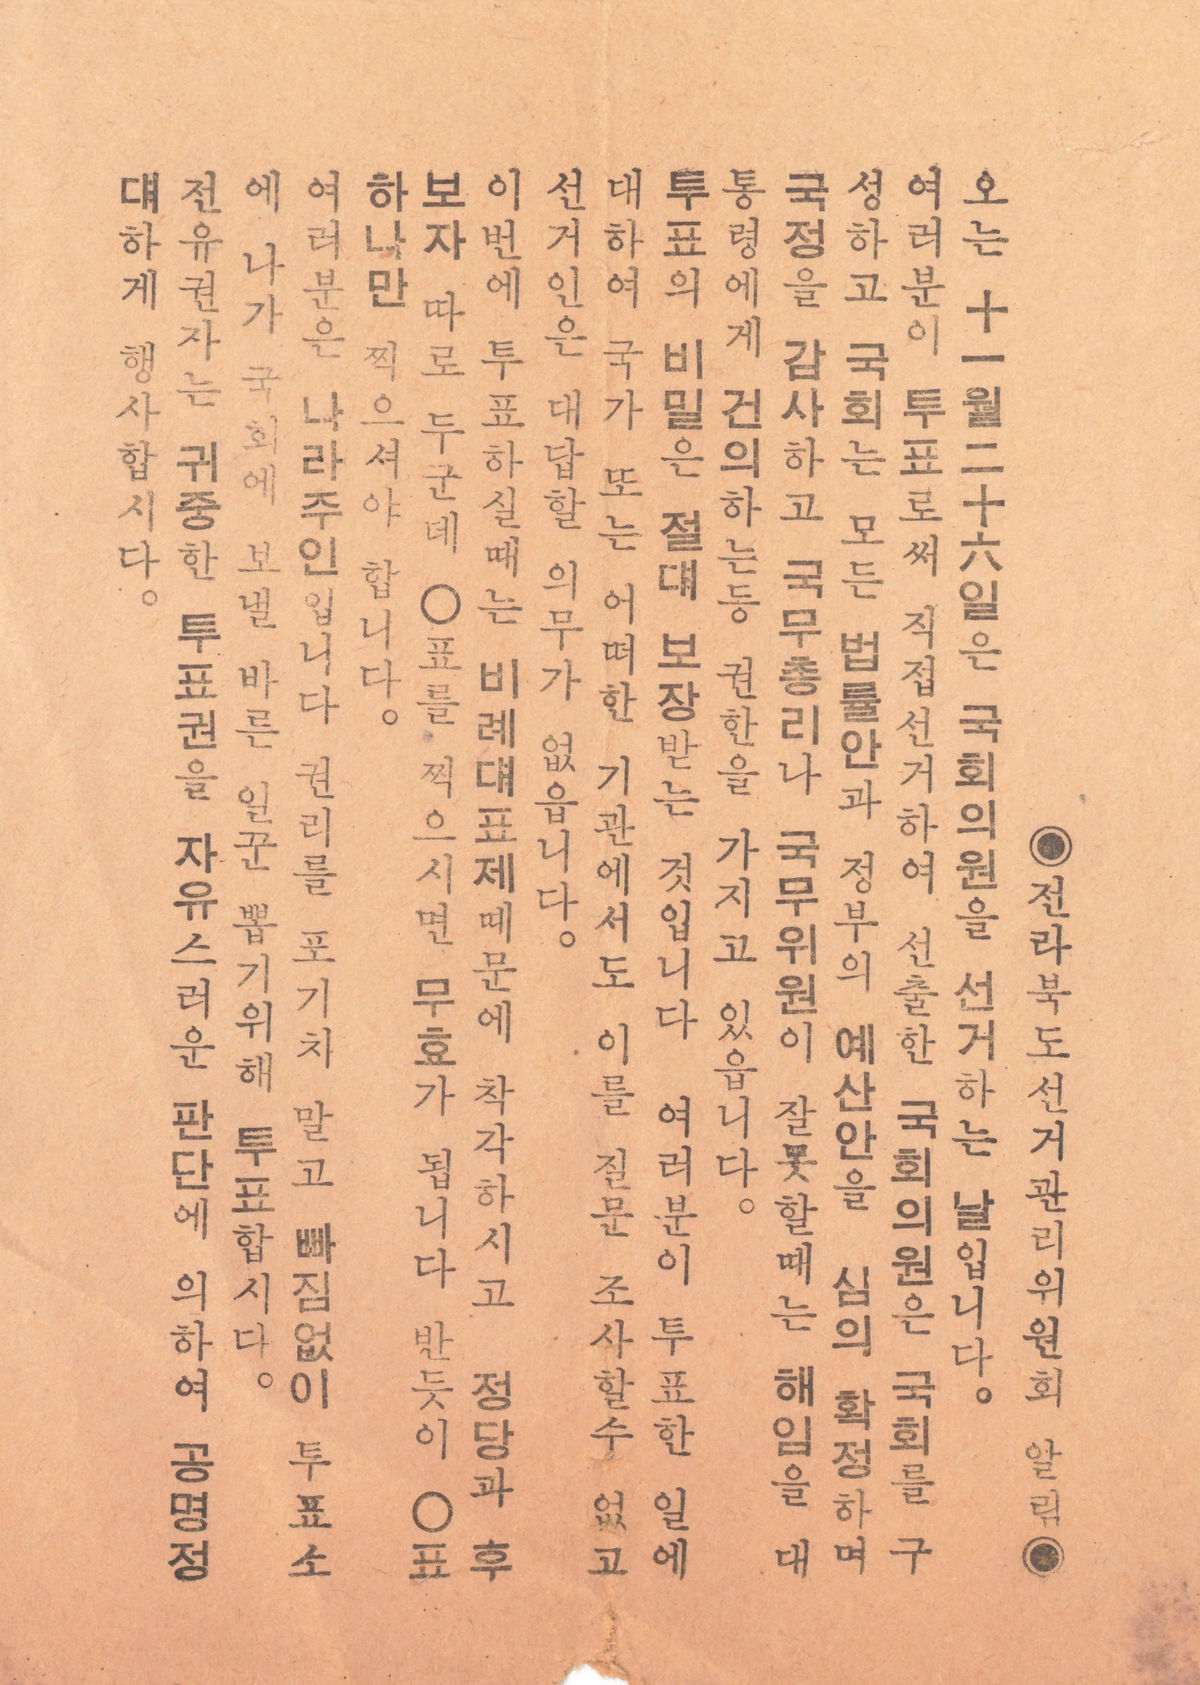 ◉전라북도선거관리위원회 알림◉
오는 十一월二十六일은 국회의원을 선거하는 날입니다。
여러분이 투표로써 직접선거하여 선출한 국회의원은 국회를 구
성하고 국회는 모든 법률안과 정부의 예산안을 심의 확정하며
국정을 감사하고 국무총리나 국무위원이 잘못할때는 해임을 대
통령에게 건의하는등 권한을 가지고 있읍니다。
투표의 비밀은 절대 보장받는 것입니다 여러분이 투표한 일에
대하여 국가 또는 어떠한 기관에서도 이를 질문 조사할수 없고
선거인은 대답할 의무가 없읍니다。
이번에 투표하실때는 비례대표제떼문에 착각하시고 정당과 후
보자 따로 두군데 ○표를 찍으시면 무효가 됩니다 반듯이 ○표
하나만 찍으셔야 합니다。
여러분은 나라주인입니다 권리를 포기치 말고 빠짐없이 투표소
에 나가 국회에 보낼 바른 일꾼 뽑기위해 투표합시다。
전유권자는 귀중한 투표권을 자유스러운 판단에 의하여 공명정
대하게 행사합시다。